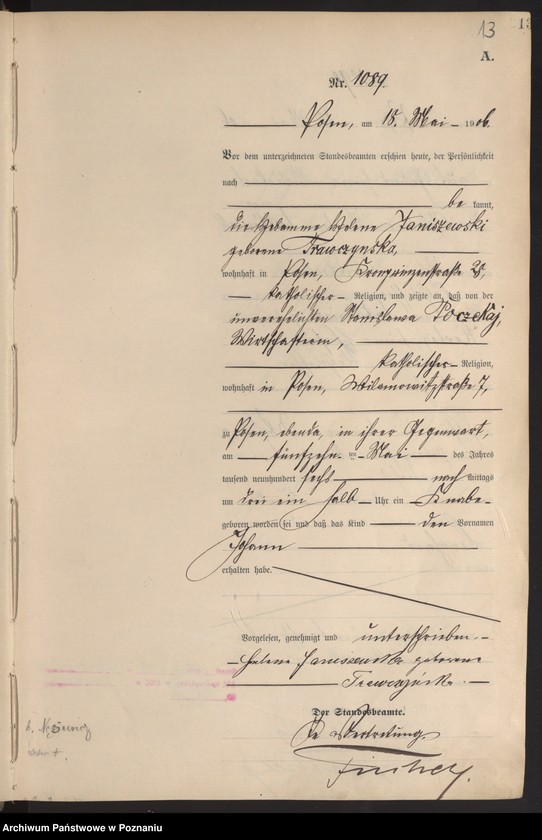 13
13
A.
Nr. 1089.
Posen, am 18. Mai 1906.
Vor dem unterzeichneten Standesbeamten erschien heute, der Persönlichkeit
nach
be kannt,
die Hebamme Helene Janiszewski
geborene Trawczynska,
wohnhaft in Posen, Kronprinzenstraße 25,
katholischer Religion, und zeigte an, daß von der
unverehelichten Stanislawa Poczekaj,
Wirtschafterin,
katholischer Religion,
wohnhaft in Posen, Wilamowitzstraße 7,
zu Posen, ebenda, in ihrer Gegenwart,
am fünfzehnten Mai des Jahres
tausend neunhundert sechs nach mittags
um drei ein halb Uhr ein Knabe
geboren worden sei und daß das Kind den Vornamen
Johann
erhalten habe.
Vorgelesen, genehmigt und unterschrieben
Helene Janiszewska geborene
Trawczyńska
Der Standesbeamte.
In Vertretung
Fischer.
Archiwum Państwowe w Poznaniu